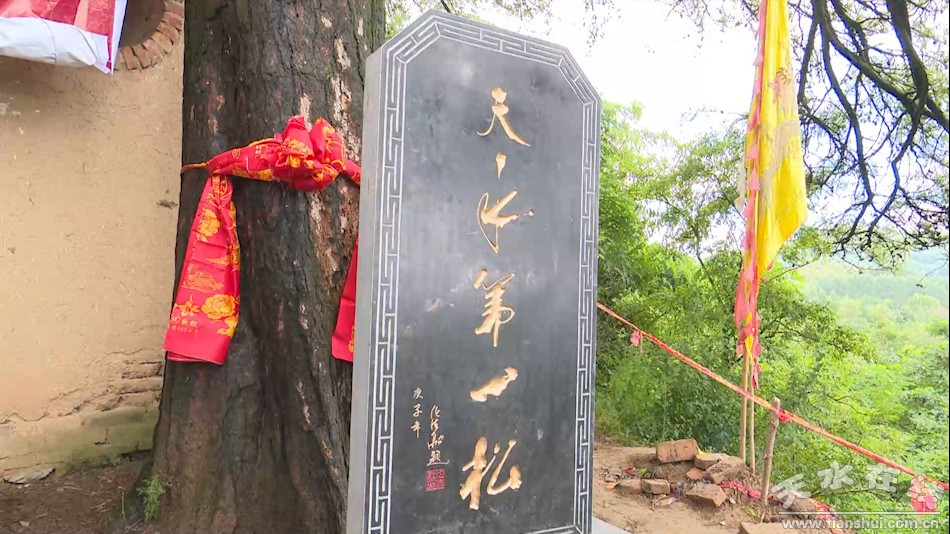 天水第一松
庚子年
天水在线
www.tianshui.com.cn